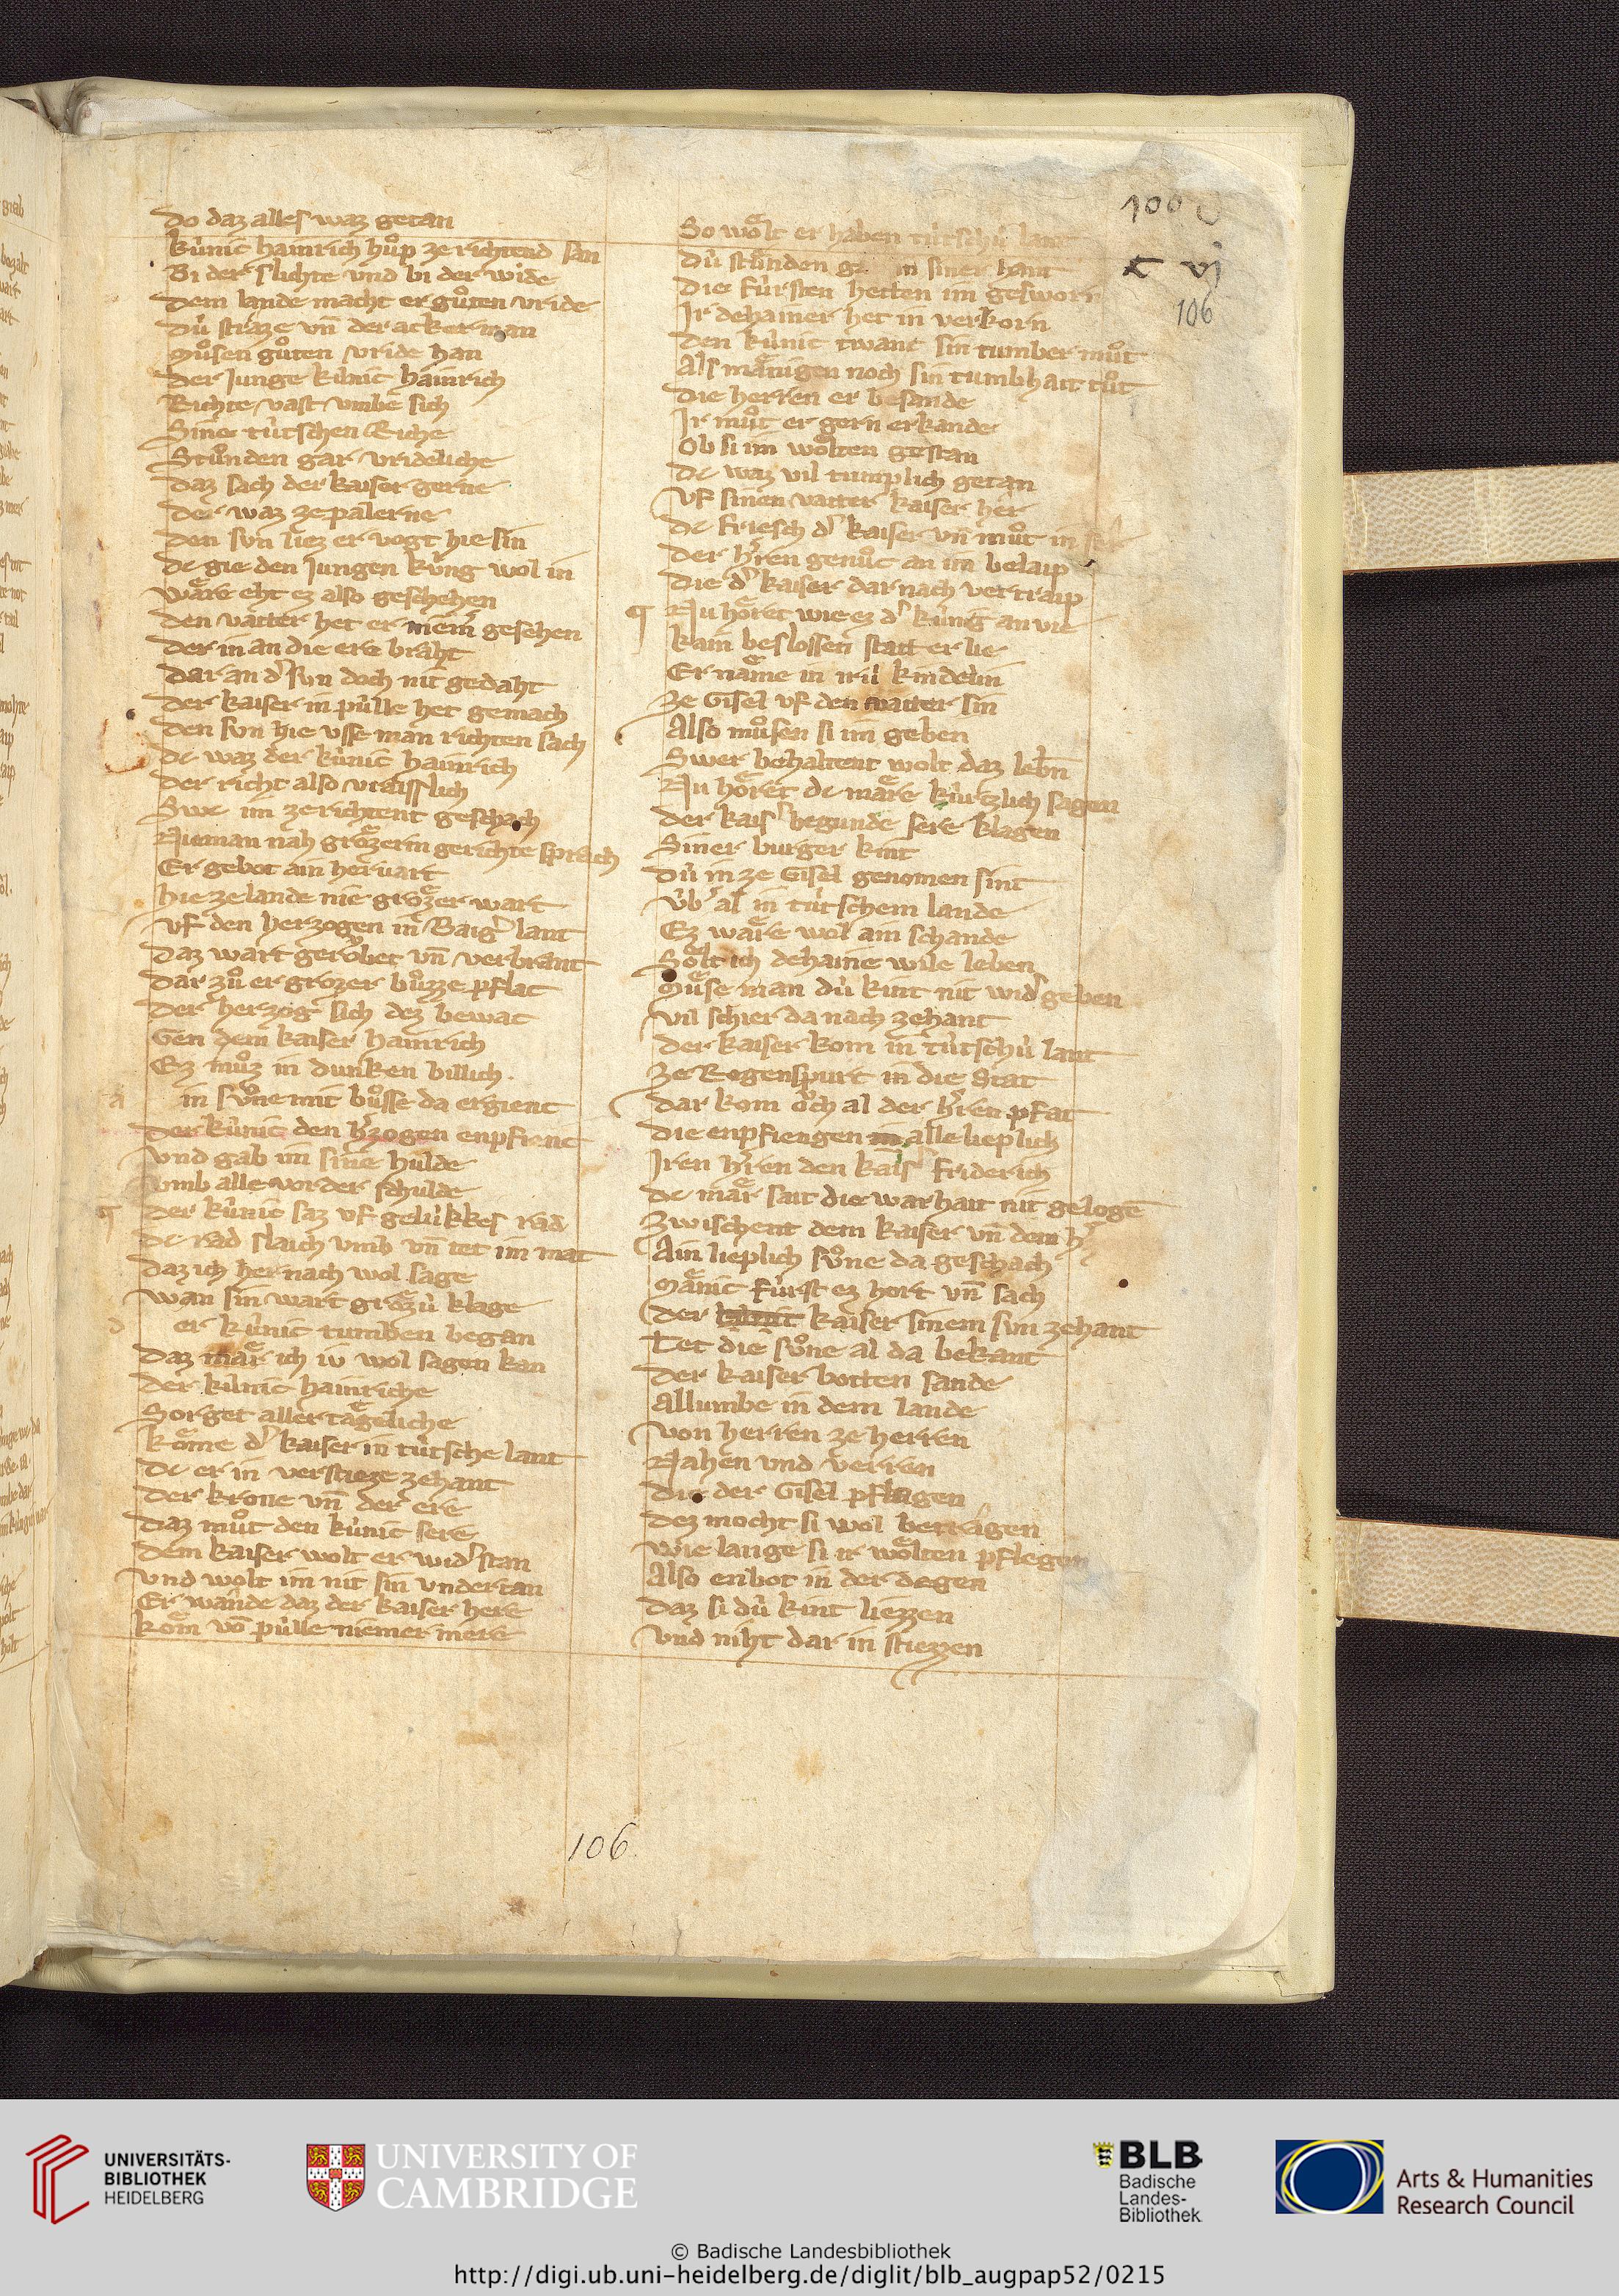 100
c vj
106
Do daz alles waz getan
ku̍nic hainrich hu̍op ze richtend san
Bi der slichte vnd bi der wide
Dem lande macht er gůten vride
Du̍ straze vn̄ der acker man
Můsen gůten vride han
Der Junge ku̍nic hainrich
Richte vast vmbe sich
Sine tu̍tschen Riche
Stůnden gar vrideliche
Daz sach der kaiser gerne
Der waz ze palerne
Den svn liez er vogt hie sin
Dc gie den Jungen ku̍ng wol in
Wäre eht ez also geschehen
Den vatter het er niem̄ gesehen
Der in an die ere braht
Dar an d' svn doch nit gedaht
Der kaiser in pu̍lle het gemach
Den svn hie vsse man richten sach
Dc waz der ku̍nic hainrich
Der richt also vraisslich
Swc im ze richtent geschach
Numan nah grözerm gerichte sprach
Er gebot ain heruart
Hie ze lande nie grözer wart
Vf den herzogen in Baig' lant
Daz wart gerobet vn̄ verbrant
Dar zů er grozer bůzze pflac
Der herzog sich dez bewac
Gen dem kaiser hainrich
Ez můz in dunken billich
a in sůne mit bůsse da ergienc
Der ku̍nic den h'zogen enpfienc
Vnd gab im sine hulde
Vmb alle vorder schulde
Der ku̍nic saz vf gelu̍kkes rad
Dc rad slaich vmb vn̄ tet im mat
Daz ich her nach wol sage
Wan sin wart grözu̍ klage
d er ku̍nic tumben began
Daz mär ich iv wol sagen kan
Der ku̍nic hainriche
Sorget aller tägeliche
Köme d' kaiser in tu̍tsche lant
Dc er in verstieze zehant
Der krone vn̄ der ere
Daz můt den ku̍nic sere
Dem kaiser wolt er wid' stan
Vnd wolt im nit sin vndertan
Er wände daz der kaiser here
Köm vō pu̍lle niemer mere
So wölt er haben tu̍tschu̍ lant
Du̍ stůnden in siner hant
Die fu̍rsten hetten im gesworn
Ir dehainer het in verkorn
Den ku̍nic twanc sin tumber můt
Als mänigen noch sin tumbhait tůt
Die herren er besande
Ir můt er gern erkande
Ob si im wölten gestan
Dc waz vil tumplich getan
Vf sinen vatter kaiser her
Dc friesch d' kaiser vn̄ můt in
Der h'ren genůc an im belaip
Die d' kaiser dar nach vertraip
Nu höret wie ez d' ku̍nig an vie
Kain beslossen statt er lie
Er näme in iru̍ kindelin
Ze Gisel vf den vatter sin
Also můsen si im geben
Swer behaltent wolt daz leb̄n
Nu höret dc märe ku̍rtzlich sagen
Der kais' begunde sere klagen
Siner burger kint
Du̍ in ze Gisel genomen sint
V̍b' al in tu̍tschem lande
Ez wäre wol ain schande
Sölt ich dehaine wile leben
Můse man du̍ kint nit wid' geben
Vil schier da nach zehant
Der kaiser kom in tu̍tschu̍ lant
Ze Regenspurt in die Stat
Dar kom och al der h'ren pfat
Die enpfiengen in alle lieplich
Iren h'ren den kais' friderich
Dc mär sait die warhait nit gelogē
Zwischent dem kaiser vn̄ dem h'
Ain lieplich sůne da geschach
Mänic fu̍rst ez hort vn̄ sach
Der ku̍nic kaiser sinem svn zehant
Tet die sůne al da bekant
Der kaiser botten sande
Allumbe in dem lande
Von herren ze herren
Nahen vnd verren
Die der Gisel pflagen
Dez mocht si wol betragen
Wie lange si ir wölten pflegen
Also enbot in der degen
Daz si du̍ kint liezzen
Vnd niht dar in stiezzen
106
UNIVERSITÄTS-
BIBLIOTHEK
HEIDELBERG
UNIVERSITY OF
CAMBRIDGE
BLB
Badische
Landes-
Bibliothek
Arts & Humanities
Research Council
© Badische Landesbibliothek
http://digi.ub.uni-heidelberg.de/diglit/blb_augpap52/0215